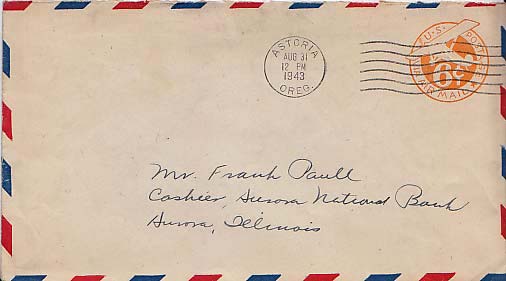 ASTORIA
AUG 31
12 PM
1943
OREG.
U.S. POSTAGE
6¢
VIA AIR MAIL
Mr. Frank Paull
Cashier, Aurora National Bank
Aurora, Illinois